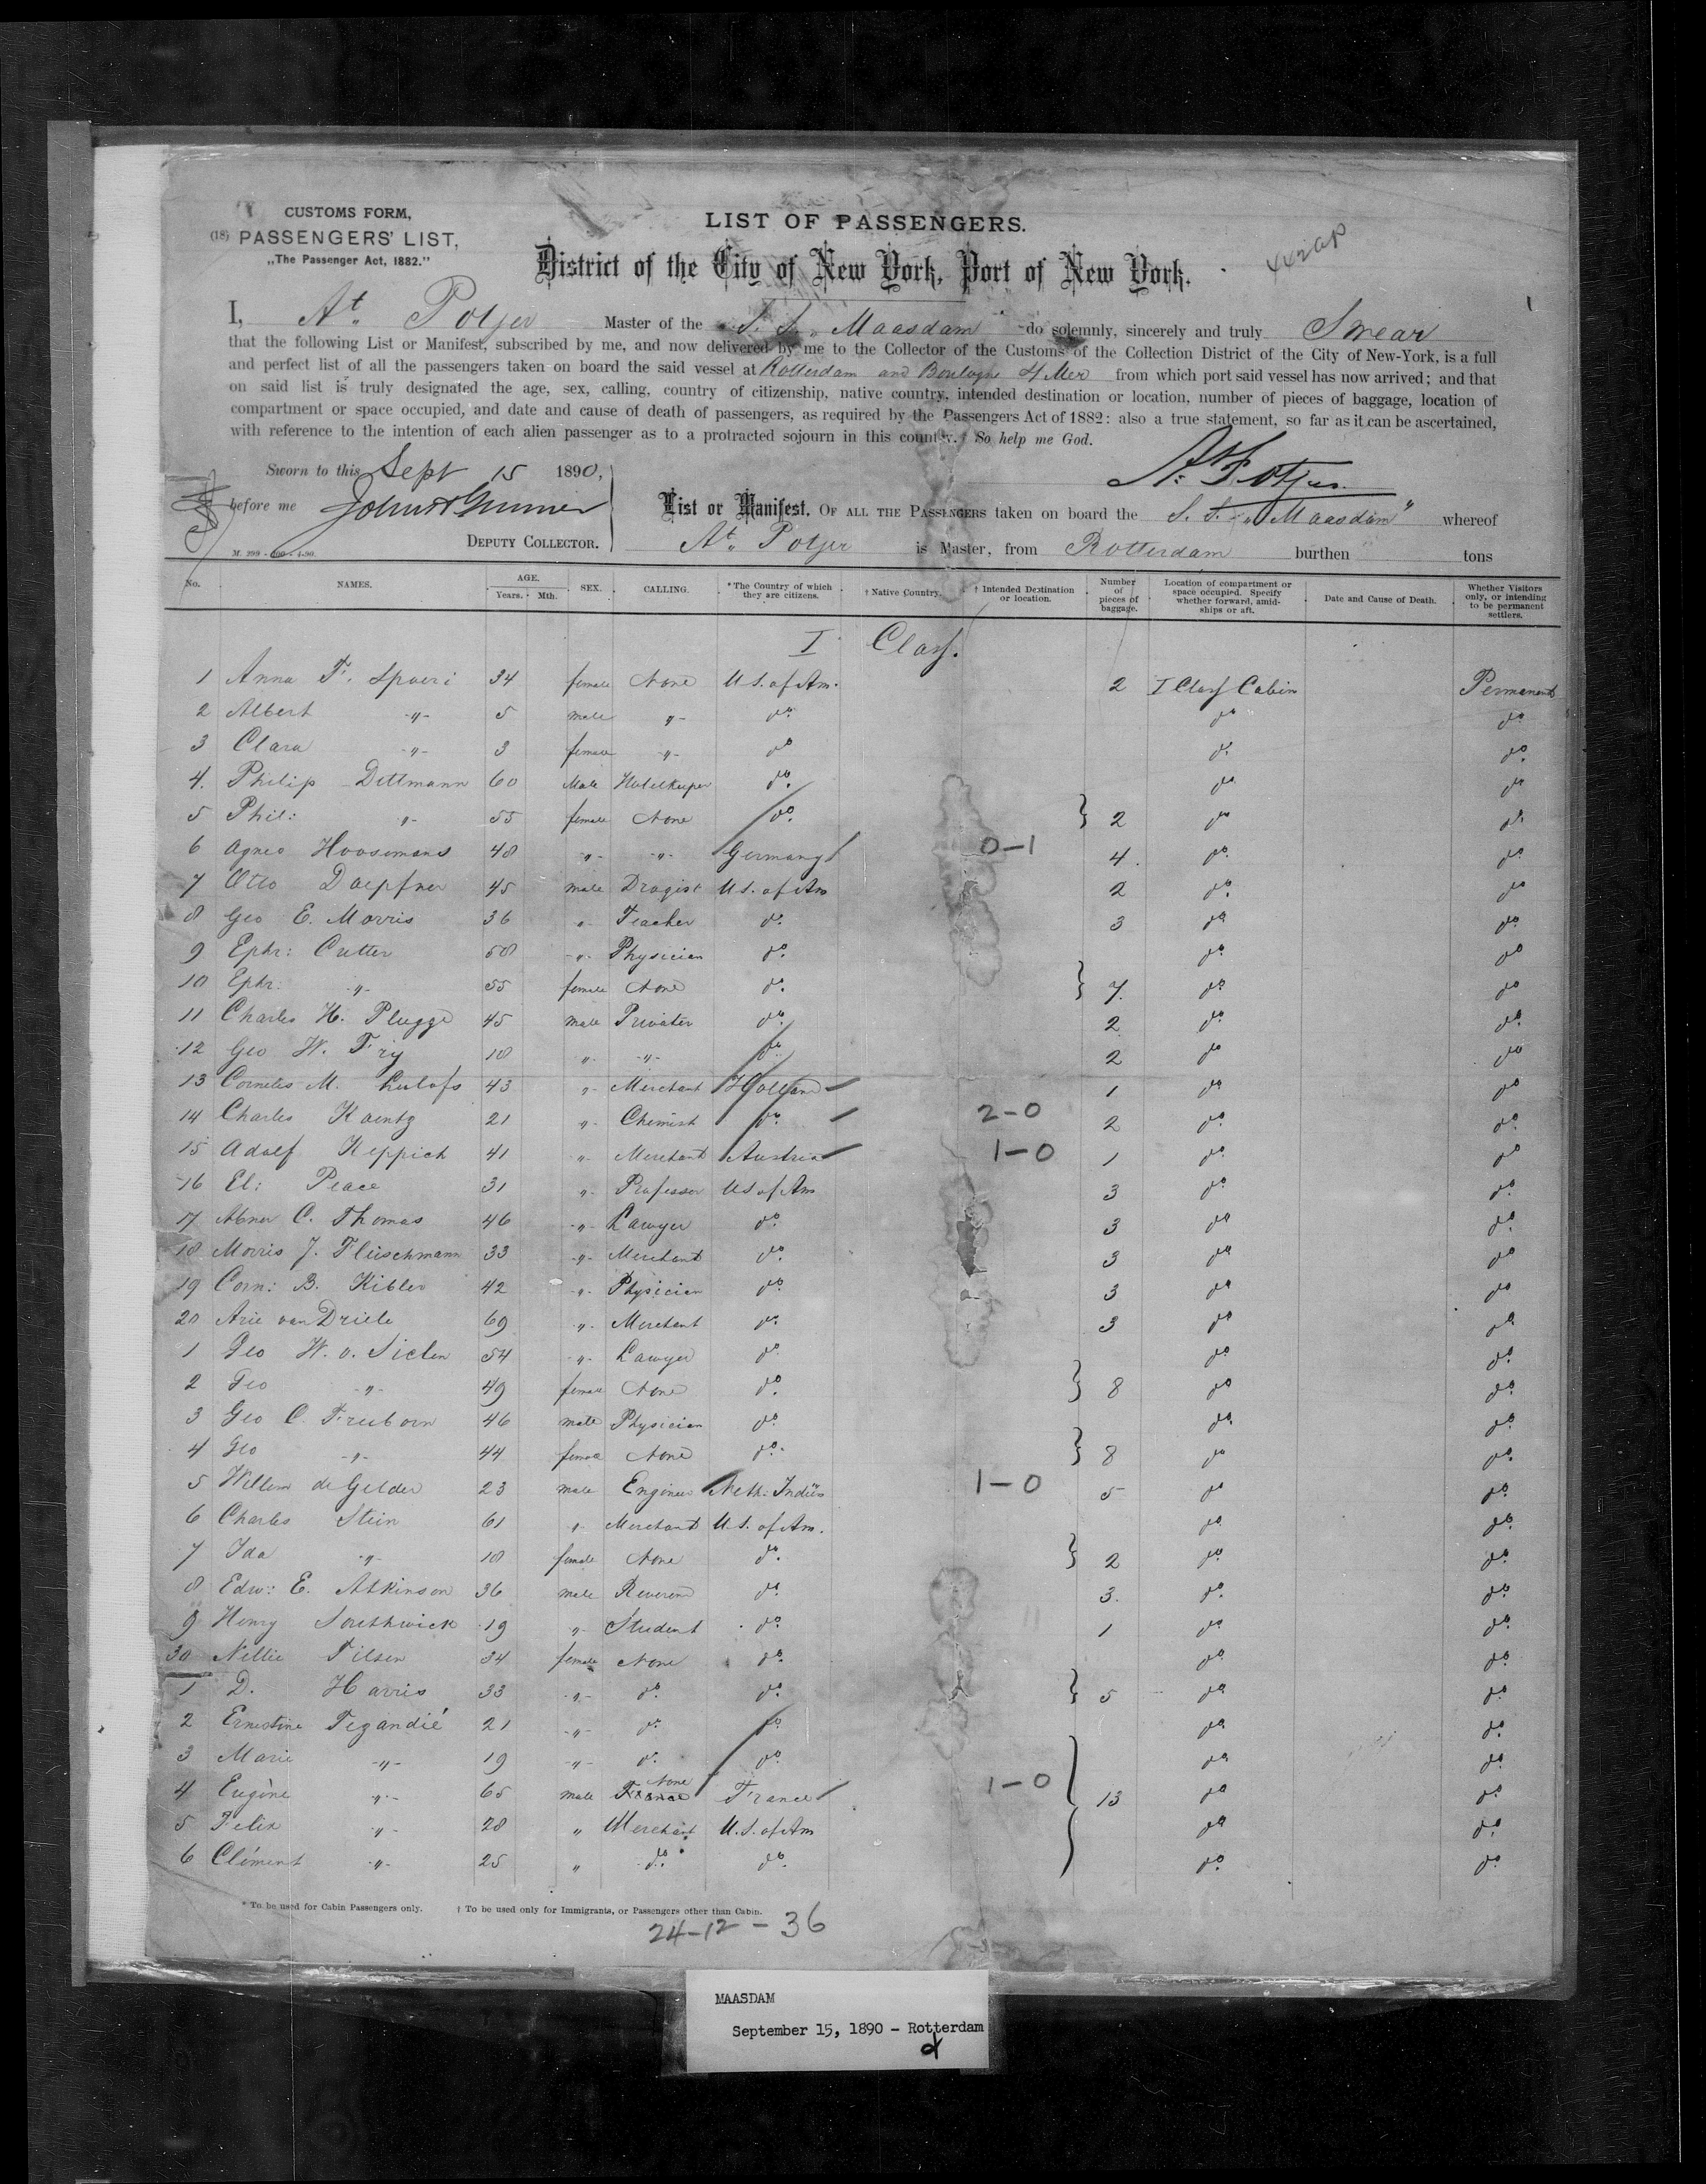 CUSTOMS FORM,
(18) PASSENGERS' LIST,
„The Passenger Act, 1882."
LIST OF PASSENGERS.
District of the City of New York, Port of New York.
I, At. Potjer Master of the S. S. „Maasdam" do solemnly, sincerely and truly Swear
that the following List or Manifest, subscribed by me, and now delivered by me to the Collector of the Customs of the Collection District of the City of New-York, is a full
and perfect list of all the passengers taken on board the said vessel at Rotterdam and Boulogne s/Mer from which port said vessel has now arrived; and that
on said list is truly designated the age, sex, calling, country of citizenship, native country, intended destination or location, number of pieces of baggage, location of
compartment or space occupied, and date and cause of death of passengers, as required by the Passengers Act of 1882: also a true statement, so far as it can be ascertained,
with reference to the intention of each alien passenger as to a protracted sojourn in this country. So help me God.
Sworn to this Sept 15 1890, At. Potjer
before me
List or Manifest. OF ALL THE PASSENGERS taken on board the S. S. „Maasdam" whereof
DEPUTY COLLECTOR. At. Potjer is Master, from Rotterdam burthen tons
No. NAMES. AGE. Years. Mth. SEX. CALLING. *The Country of which they are citizens. †Native Country. †Intended Destination or location. Number of pieces of baggage. Location of compartment or space occupied. Specify whether forward, amidships or aft. Date and Cause of Death. Whether Visitors only, or intending to be permanent settlers.
I Class.
1 Anna F. Spoeri 34 female None U.S. of Am. 2 I Class Cabin Permanent
2 Albert -"- 5 male -"- do. do. do.
3 Clara -"- 3 female -"- do. do. do.
4. Philip Dittmann 60 Male Hotelkeeper do. do. do.
5 Phil: -"- 55 female None do. } 2 do. do.
6 Agnes Hoosemans 48 -"- -"- Germany 0-1 4. do. do.
7 Otto Doepfner 45 male Drogist U.S. of Am 2 do. do.
8 Geo E. Morris 36 " Teacher do. 3 do. do.
9 Ephr: Cutter 58 -"- Physician do. do. do.
10 Ephr: -"- 55 female None do. } 7. do. do.
11 Charles H. Plugge 45 male Privater do. 2 do. do.
12 Geo W. Fry 18 " -"- do. 2 do. do.
13 Cornelis M. Lulofs 43 " Merchant Holland 1 do. do.
14 Charles Koentz 21 " Chemist do. 2-0 2 do. do.
15 Adolf Keppich 41 " Merchant Austria 1-0 1 do. do.
16 El: Peace 31 " Professor U.S of Am 3 do. do.
17 Abner C. Thomas 46 -"- Lawyer do. 3 do. do.
18 Morris J. Fleischmann 33 -"- Merchant do. 3 do. do.
19 Corn: B. Kibler 42 -"- Physician do. 3 do. do.
20 Arie van Driele 69 -"- Merchant do. 3 do. do.
1 Geo W. v. Siclen 54 -"- Lawyer do. do. do.
2 Geo -"- 49 female None do. } 8 do. do.
3 Geo C. Freeborn 46 male Physician do. do. do.
4 Geo -"- 44 female None do. } 8 do. do.
5 Willem de Gelder 23 male Engineer Neth. Indiës 1-0 5 do. do.
6 Charles Stein 61 " Merchant U.S. of Am. do. do.
7 Ida -"- 18 female None do. } 2 do. do.
8 Edw: E. Atkinson 36 male Reverend do. 3. do. do.
9 Henry Southwick 19 " Student do. 1 do. do.
30 Nellie Tilsen 34 female None do. do. do.
1 D. Harris 33 -"- do. do. } 5 do. do.
2 Ernestine Tezandié 21 -"- do. do. do. do.
3 Marie -"- 19 -"- do. do. do. do.
4 Eugène -"- 65 male None France 1-0 13 do. do.
5 Felix -"- 28 " Merchant U.S. of Am do. do.
6 Clément -"- 25 " do. do. do. do.
* To be used for Cabin Passengers only. † To be used only for Immigrants, or Passengers other than Cabin.
24-12-36
MAASDAM
September 15, 1890 - Rotterdam
d